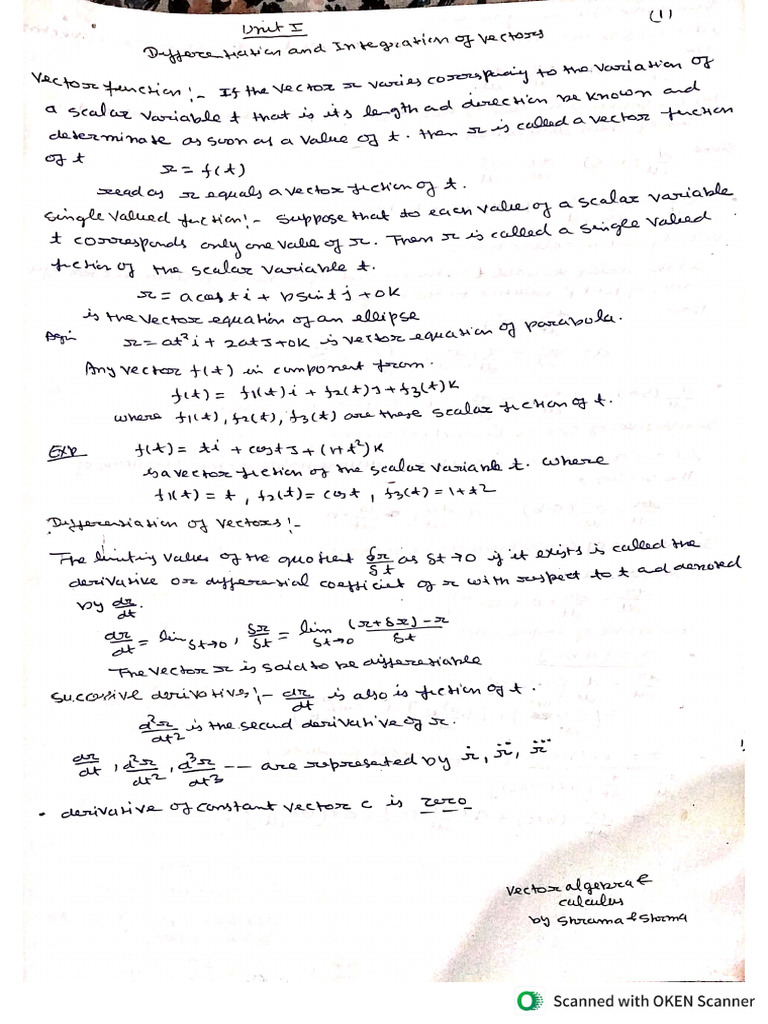 (1)
Unit I
Differentiation and Integration of Vectors
Vector function :- If the vector r varies corresponding to the variation of
a scalar variable t that is its length ad direction be known and
determinate as soon as a value of t. then r is called a vector function
of t
r = f(t)
read as r equals a vector fuction of t.
Single valued fuction :- Suppose that to each value of a scalar variable
t corrosponds only one value of r. Then r is called a single valued
fuction of the scalar variable t.
r = a cos t i + b sin t j + 0k
is the vector equation of an ellipse
Again r = at²i + 2at J + 0k is vector equation of parabola.
Any vector f(t) in component from.
f(t) = f1(t)i + f2(t)J + f3(t)k
where f1(t), f2(t), f3(t) are these scalar fuction of t.
Exp f(t) = ti + cost J + (1+t²)k
is a vector fuction of the scalar variable t. where
f1(t) = t, f2(t) = cost, f3(t) = 1+t2
Differentiation of vectors :-
The limiting value of the quotient δr/δt as δt→0 if it exists is called the
derivative or differential coefficient of r with respect to t ad denoted
by dr/dt.
dr/dt = lim δt→0, δr/δt = lim δt→0 (r+δr)-r/δt
The vector r is said to be differentiable
Successive derivatives :- dr/dt is also is fuction of t.
d²r/dt2 is the second derivative of r.
dr/dt, d²r/dt2, d³r/dt3 -- are represented by ṙ, r̈, r⃛
• derivative of constant vector c is zero
Vector algebra &
calculus
by Shrama & Shorma
Scanned with OKEN Scanner